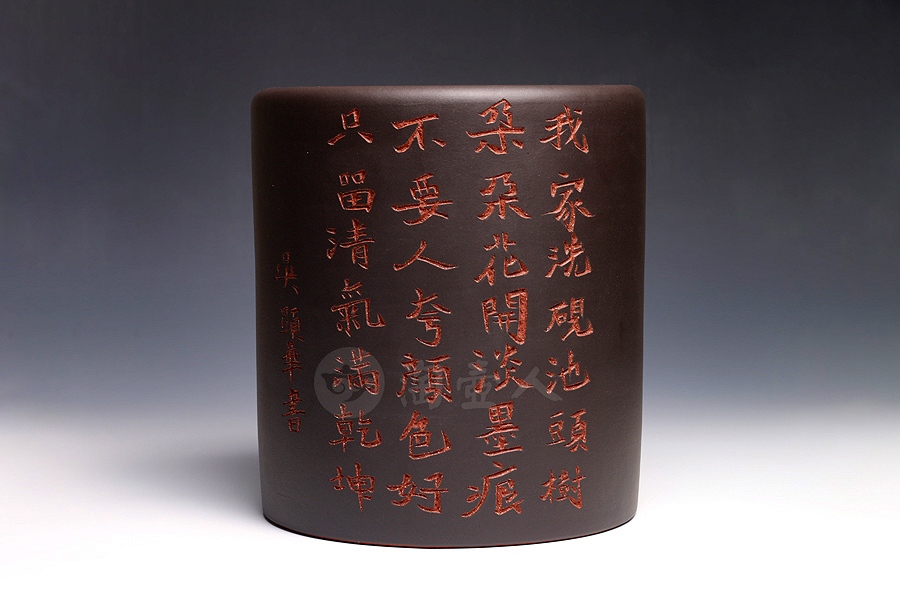 我家洗硯池頭樹
朵朵花開淡墨痕
不要人夸顏色好
只留清氣滿乾坤
吳華書
壺人